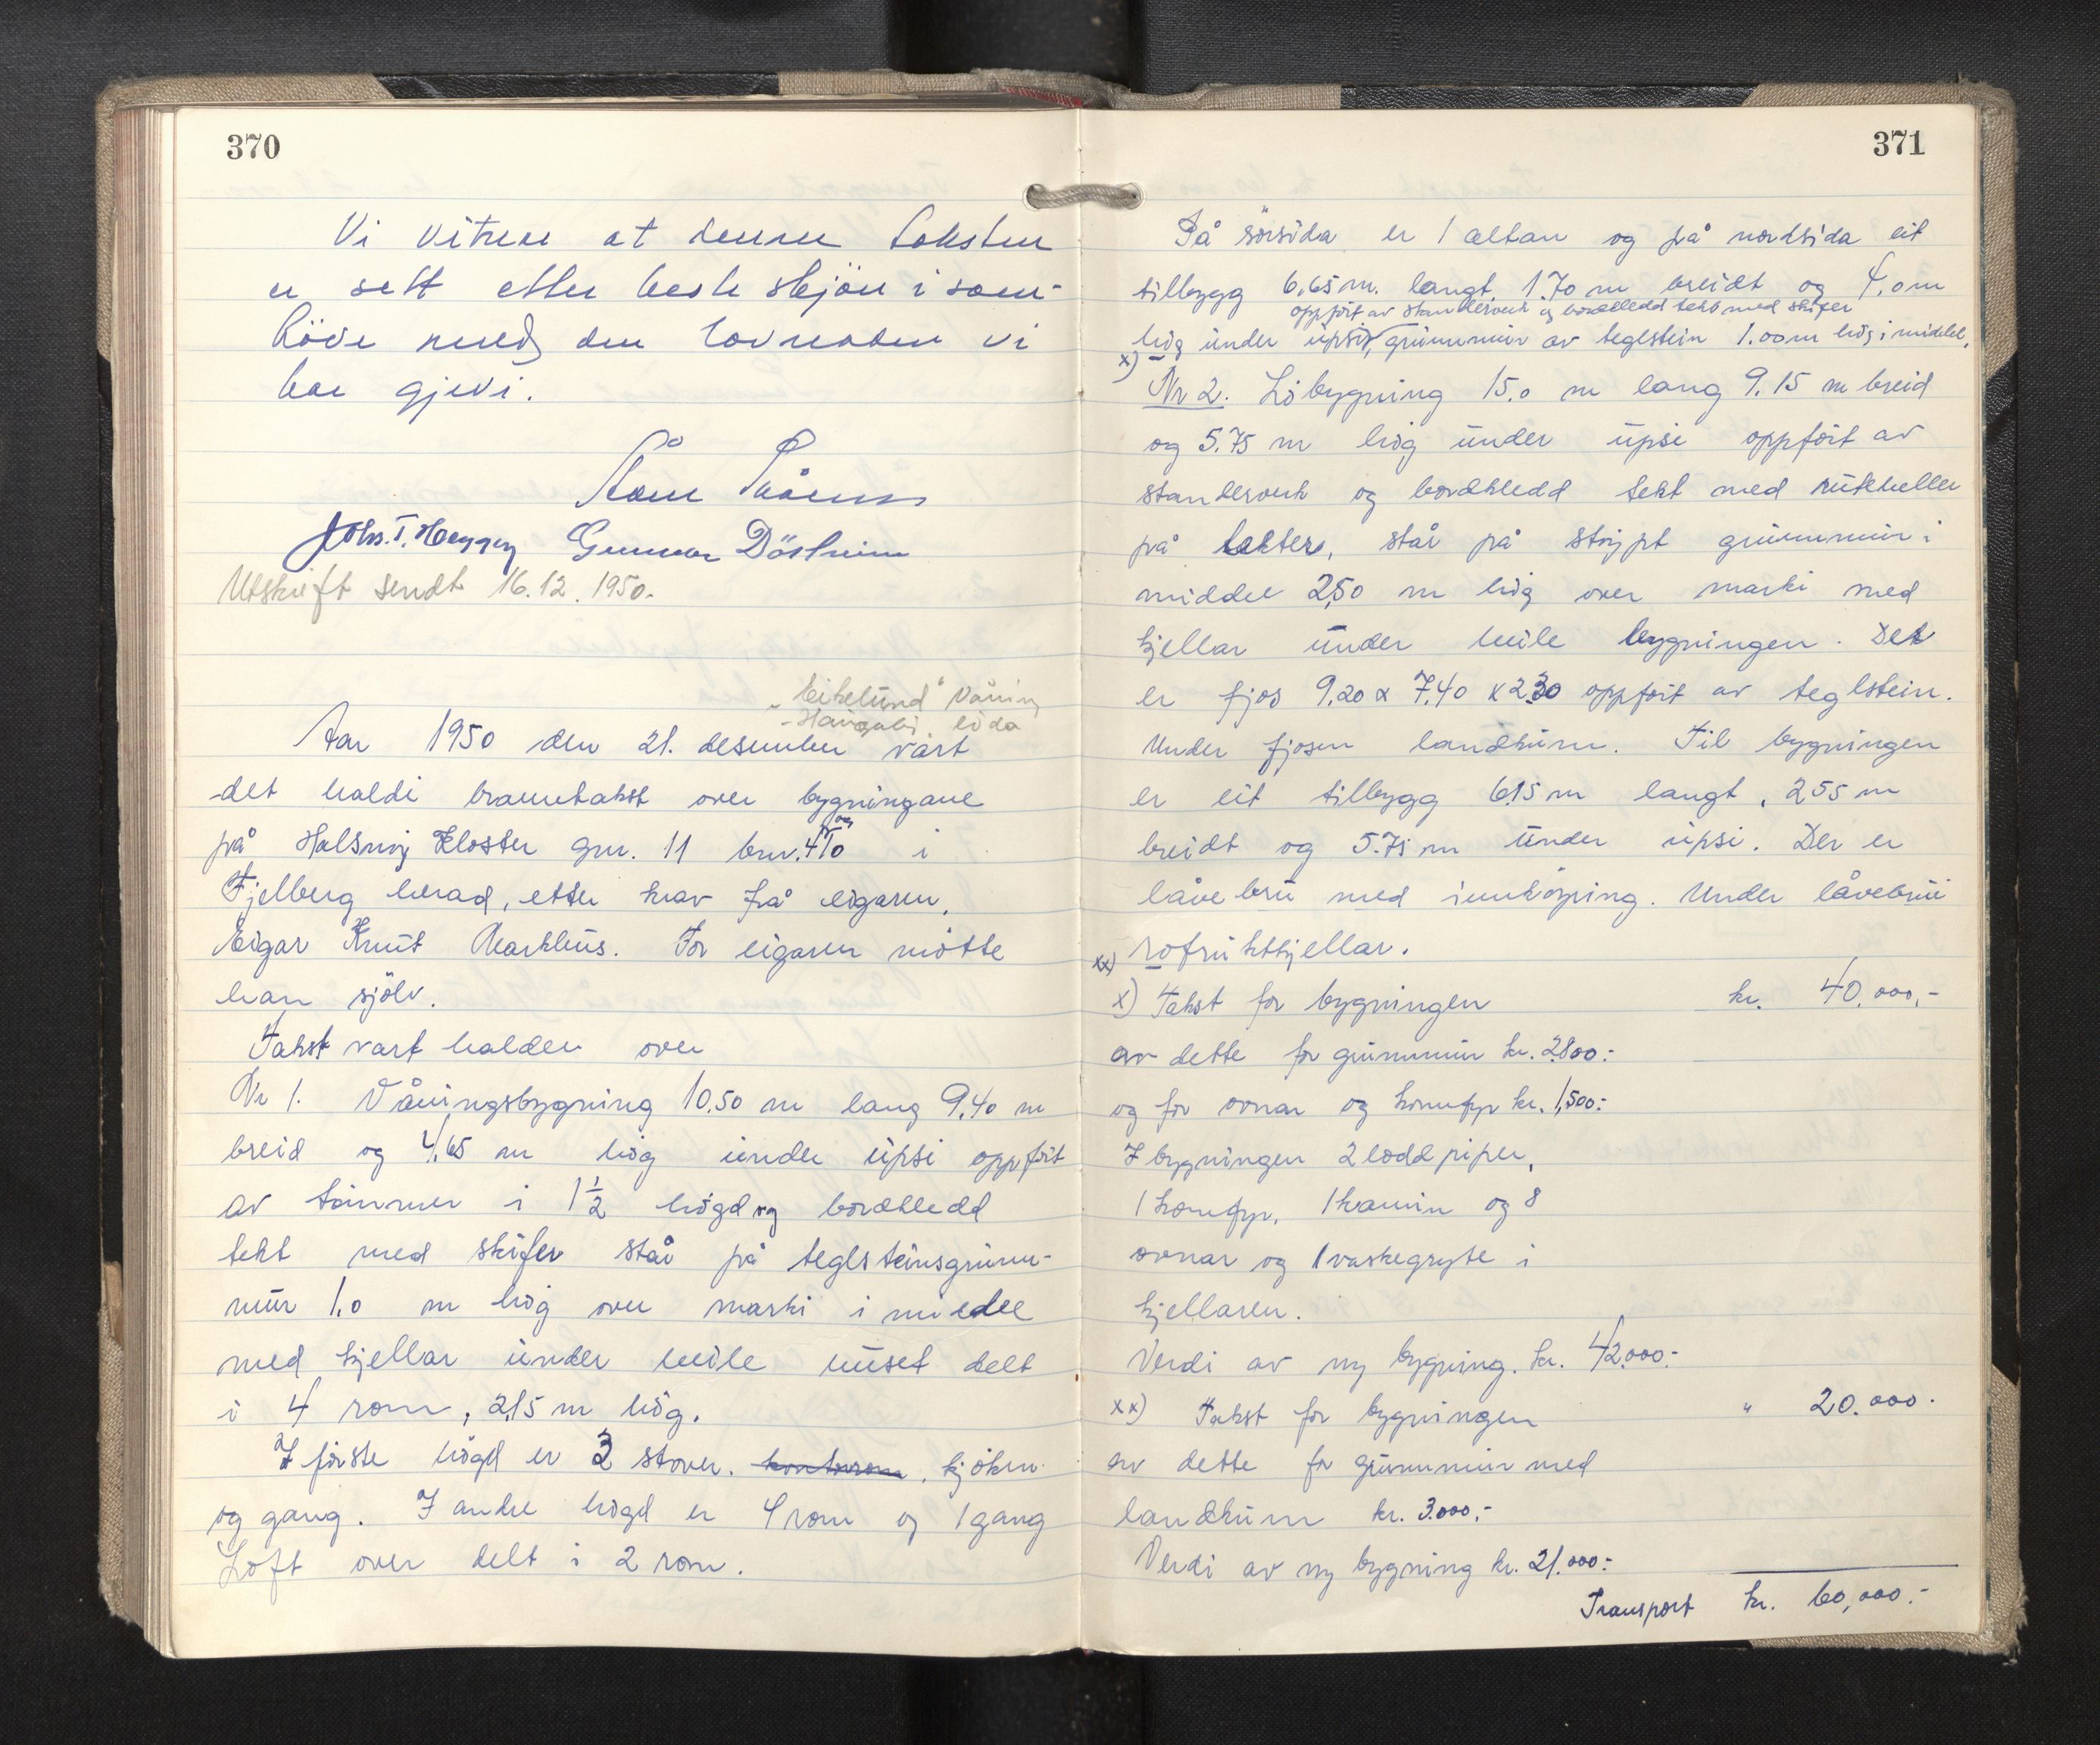 370
Vi vitner at denne taksten
er sett etter beste skjön i sam-
höve med den lovnaden vi
har gjevi.
Gunnar Döskeim
Utskrift sendt 16.12.1950.
"Eikelund" Våning
löda
Aar 1950 den 21. desember vart
det haldi branntakst over bygningane
på Halsnöy Kloster gnr. 11 bnr. 4 og 10 i
Fjelberg herad, etter krav frå eigaren.
Eigar Knut Markhus. For eigaren mötte
han sjölv.
Takst vart halden over
Nr 1. Våningsbygning 10.50 m lang 9.40 m
breid og 4,65 m hög under upsi oppfört
av tömmer i 1½ högd og bordkledd
tekt med skifer står på teglsteinsgrunn-
mur 1.0 m hög over marki i middel
med kjellar under heile huset delt
i 4 rom, 2,15 m hög.
I förste högd er 3 stover. kontorrom, kjöken
og gang. I andre högd er 4 rom og 1 gang
Loft over delt i 2 rom.
371
På sörsida er 1 altan og på nordsida eit
tilbygg 6,65 m. langt 1.70 m breidt og 4.0 m
oppfört av standerverk og bordkledd tekt med skifer
hög under upsi, grunnmur av teglstein 1.00 m hög i middel.
x)
Nr 2. Löbygning 15.0 m lang 9.15 m breid
og 5.75 m hög under upsi oppfört av
standerverk og bordkledd tekt med rutheller
på lekter, står på stöypt grunnmur i
middel 2,50 m hög over marki med
kjellar under heile bygningen. Det
er fjos 9.20 x 7.40 x 2.30 oppfört av teglstein.
Under fjosen landkum. Til bygningen
er eit tilbygg 6,15 m langt, 2.55 m
breidt og 5.75 m under upsi. Der er
låvebru med innköyring. Under låvebrui
xx) rotfruktkjellar.
x) Takst for bygningen kr. 40.000,-
av dette for grunnmur kr. 2800:-
og for ovnar og komfyr kr. 1,500:-
I bygningen 2 loddpiper,
1 komfyr, 1 kamin og 8
ovnar og 1 vaskegryte i
kjellaren.
Verdi av ny bygning. kr. 42.000:-
xx) Takst for bygningen " 20.000.
av dette for grunnmur med
landkum kr. 3.000,-
Verdi av ny bygning kr. 21.000:-
Transport kr. 60,000.-